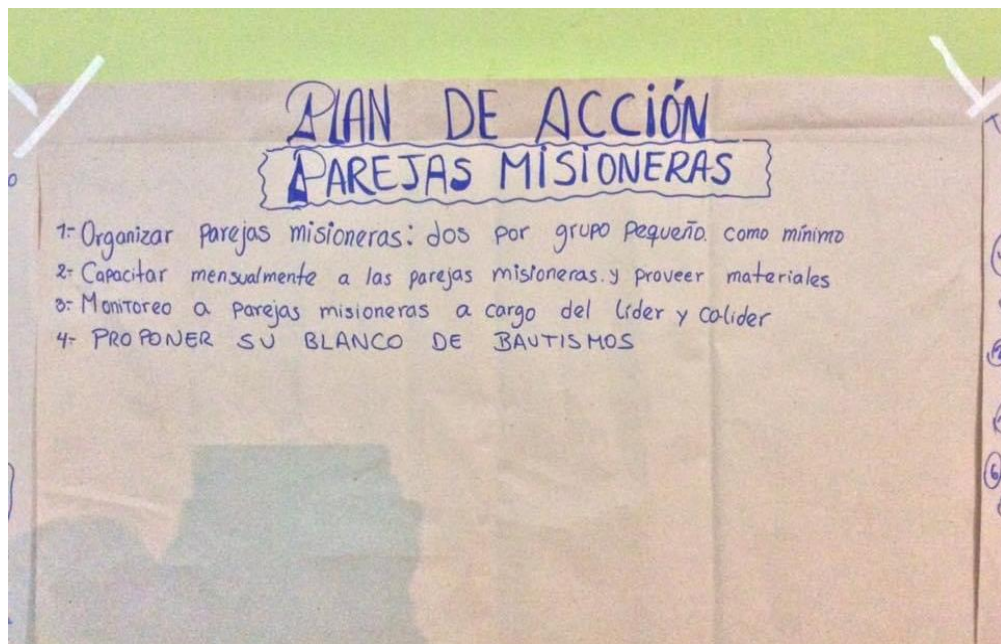 PLAN DE ACCIÓN
PAREJAS MISIONERAS
1:- Organizar parejas misioneras: dos por grupo pequeño. como mínimo
2:- Capacitar mensualmente a las parejas misioneras. y proveer materiales
3:- Monitoreo a parejas misioneras a cargo del líder y colider
4:- PROPONER SU BLANCO DE BAUTISMOS